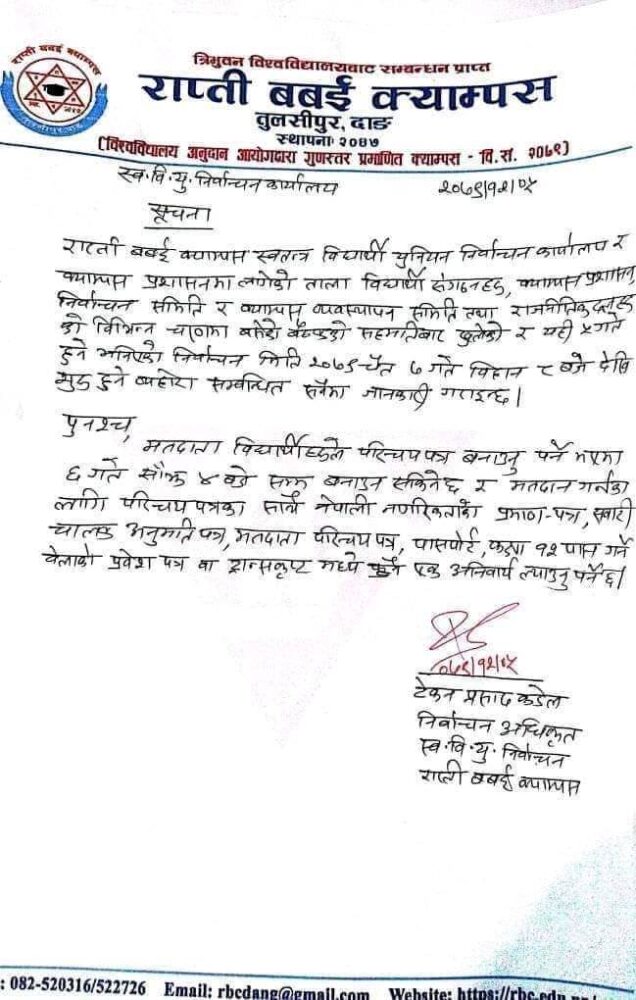 राप्ती बबई क्याम्पस
त्रिभुवन विश्वविद्यालयबाट सम्बन्धन प्राप्त
राप्ती बबई क्याम्पस
तुलसीपुर, दाङ
स्थापनाः २०४७
(विश्वविद्यालय अनुदान आयोगद्वारा गुणस्तर प्रमाणित क्याम्पस - वि.सं. २०७९)
स्व.वि.यु. निर्वाचन कार्यालय २०७९/१२/०५
सूचना
राप्ती बबई क्याम्पस स्वतन्त्र विद्यार्थी युनियन निर्वाचन कार्यालय र
क्याम्पस प्रशासनमा लागेको ताला विद्यार्थी संगठनहरू, क्याम्पस प्रशासन,
निर्वाचन समिति र क्याम्पस व्यवस्थापन समिति तथा राजनीतिक दलहरू
को विभिन्न चरणमा बसेको बैठकको सहमतिबाट खुलेको र यही ५ गते
हुने भनिएको निर्वाचन मिति २०७९ चैत ७ गते विहान ८ बजे देखि
शुरु हुने व्यहोरा सम्बन्धित सबैमा जानकारी गराइन्छ।
पुनश्च,
मतदाता विद्यार्थीहरूले परिचयपत्र बनाउनु पर्ने भएमा
६ गते साँझ ४ बजे सम्म बनाउन सकिनेछ र मतदान गर्नका
लागि परिचय पत्रका साथै नेपाली नागरिकताको प्रमाण-पत्र, सवारी
चालक अनुमति पत्र, मतदाता परिचय पत्र, पासपोर्ट, कक्षा १२ पास गर्ने
बेलाको प्रवेश पत्र वा ट्रान्सकृप्ट मध्ये कुनै एक अनिवार्य ल्याउनु पर्नेछ।
०७९/१२/०५
टेकन प्रसाद कडेल
निर्वाचन अधिकृत
स्व.वि.यु. निर्वाचन
राप्ती बबई क्याम्पस
: 082-520316/522726 Email: rbcdang@gmail.com Website: https://rbc.edu.